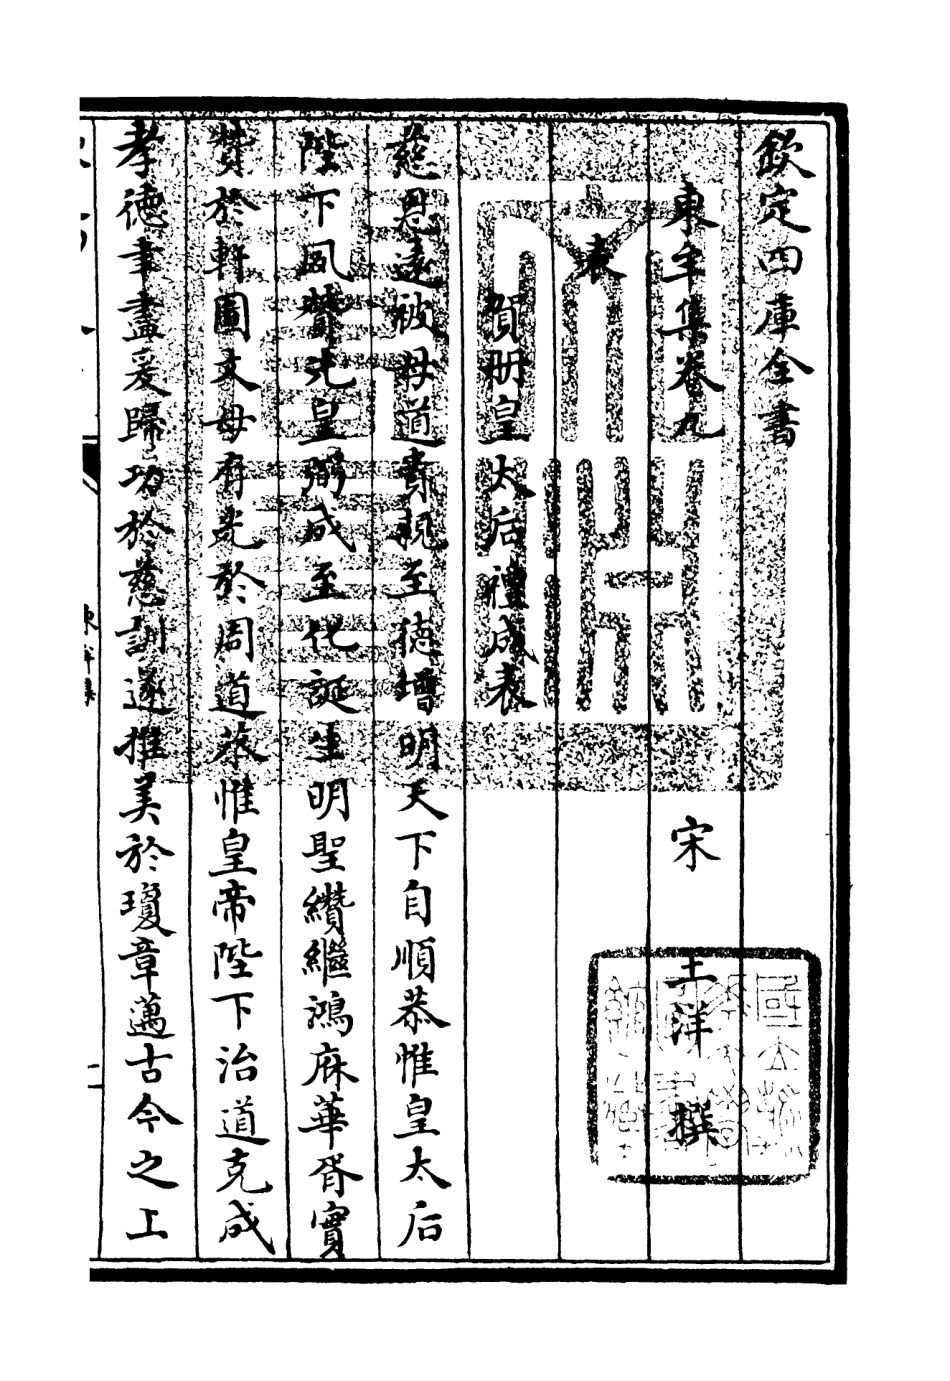 欽定四庫全書
東牟集卷九
宋 王洋 撰
表
賀册皇太后禮成表
慈恩遠被母道素規至德増明天下自順恭惟皇太后
陛下夙贊先皇弼成至化誕生明聖纘繼鴻庥華胥實
贊於軒圖文母有光於周道恭惟皇帝陛下治道克成
孝德聿盡爰歸功於慈訓遂推美於瓊章邁古今之上